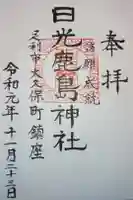 奉拝
日光鹿島神社
足利市大久保町鎮座
令和元年十一月二十三日